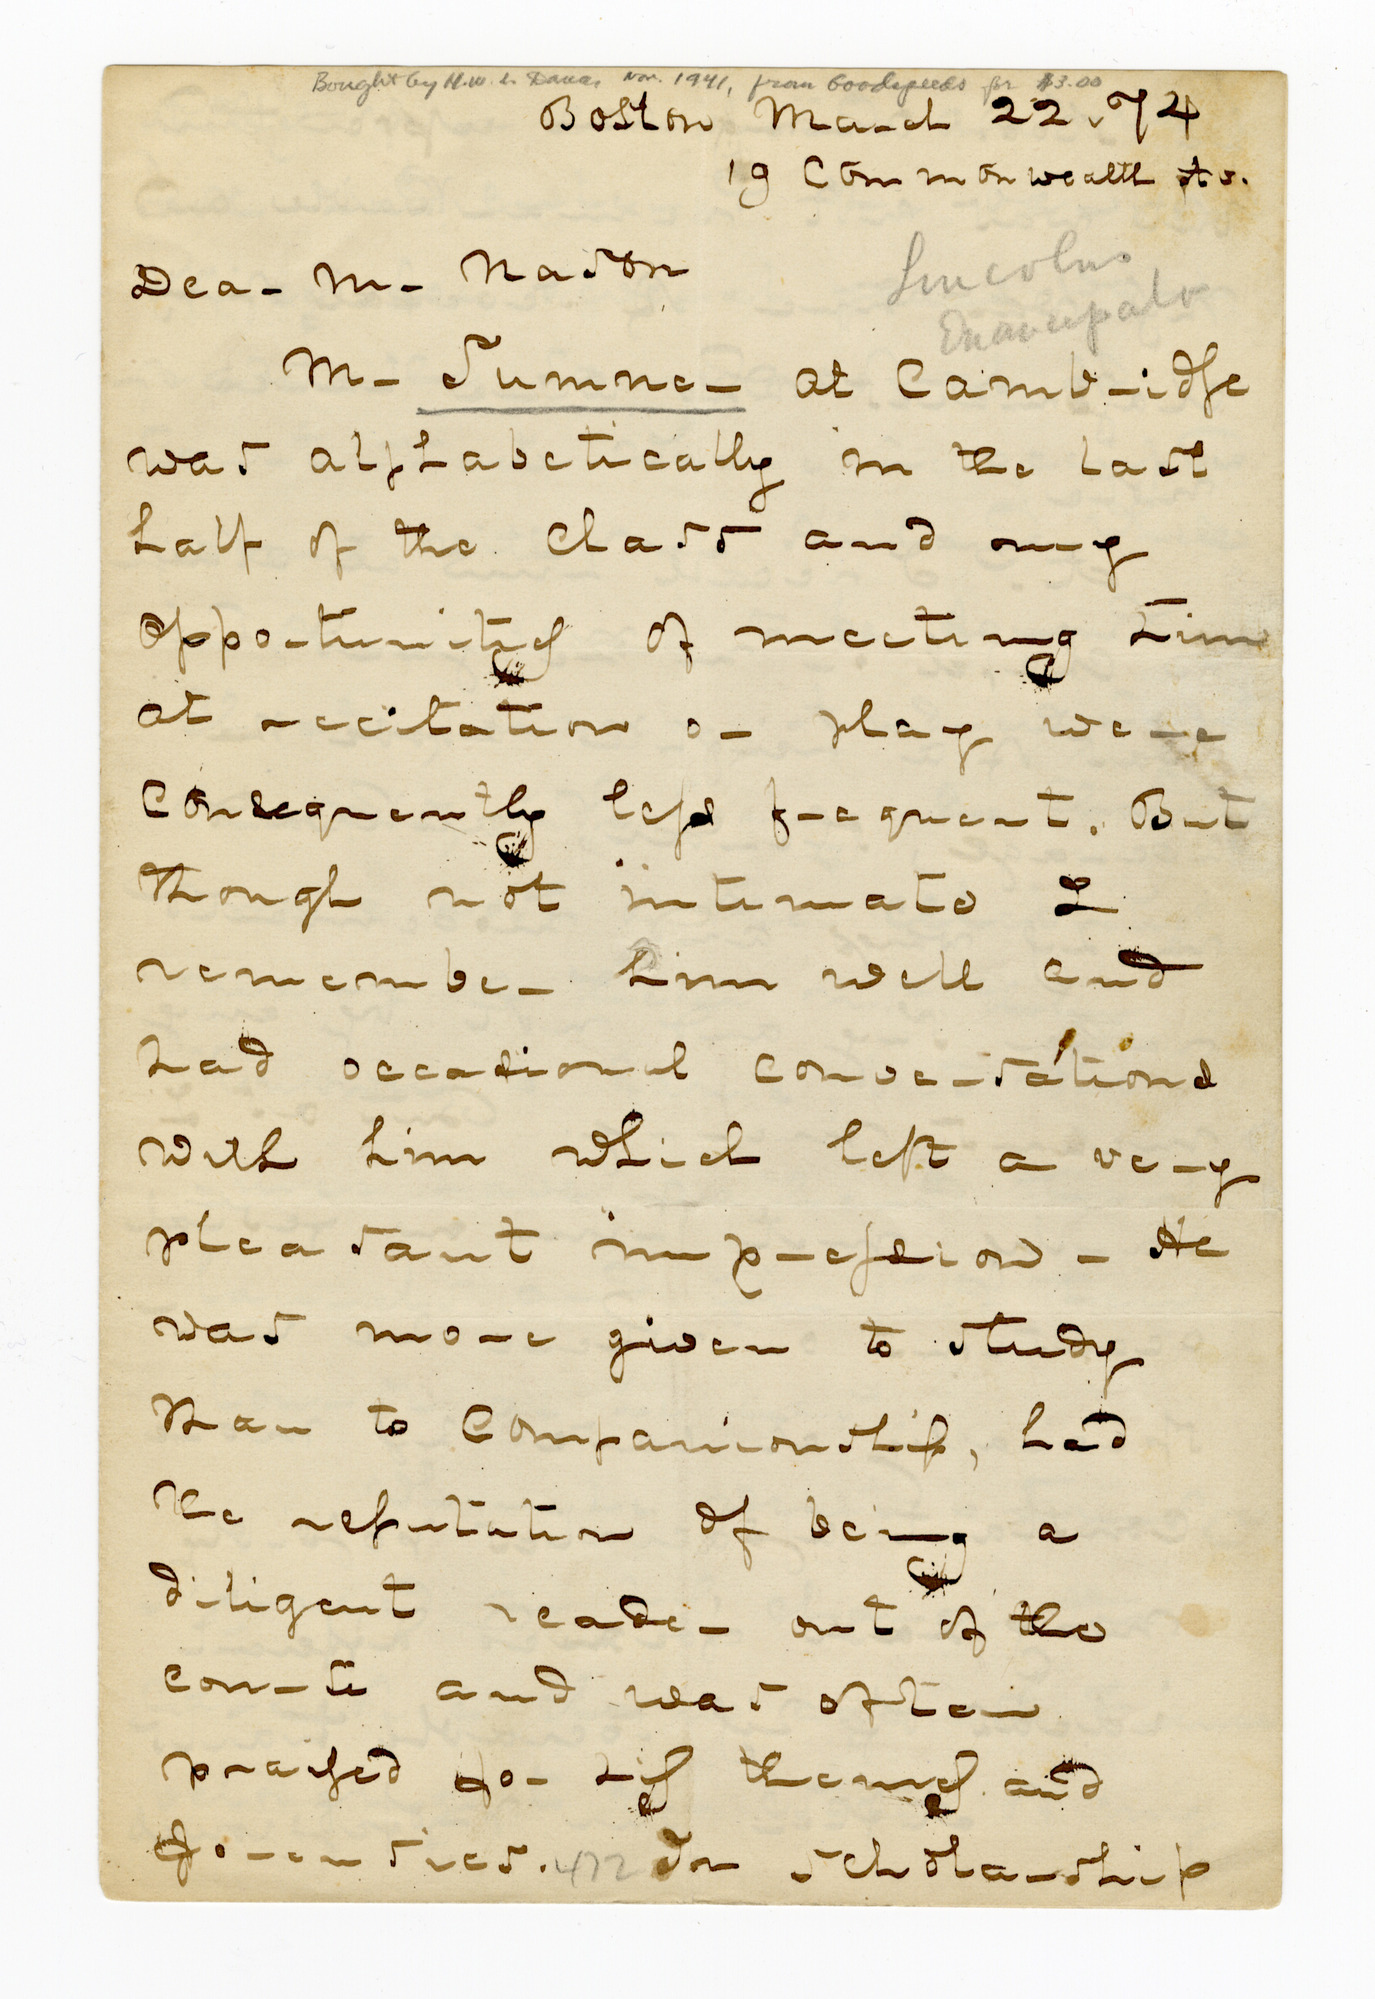 Bought by H.W.L. Dana, Nov. 1941, from Goodspeeds for $3.00
Boston March 22. 74
19 Commonwealth Av.
Dear Mr Nason
Lincolns
Emancipato
Mr Sumner at Cambridge
was alphabetically in the last
half of the class and my
opportunities of meeting him
at recitation or play were
consequently less frequent. But
though not intimate I
remember him well and
had occasional conversations
with him which left a very
pleasant impression - He
was more given to study
than to companionship, had
the reputation of being a
diligent reader out of the
course and was often
praised for his themes and
forensics. 472 In scholarship